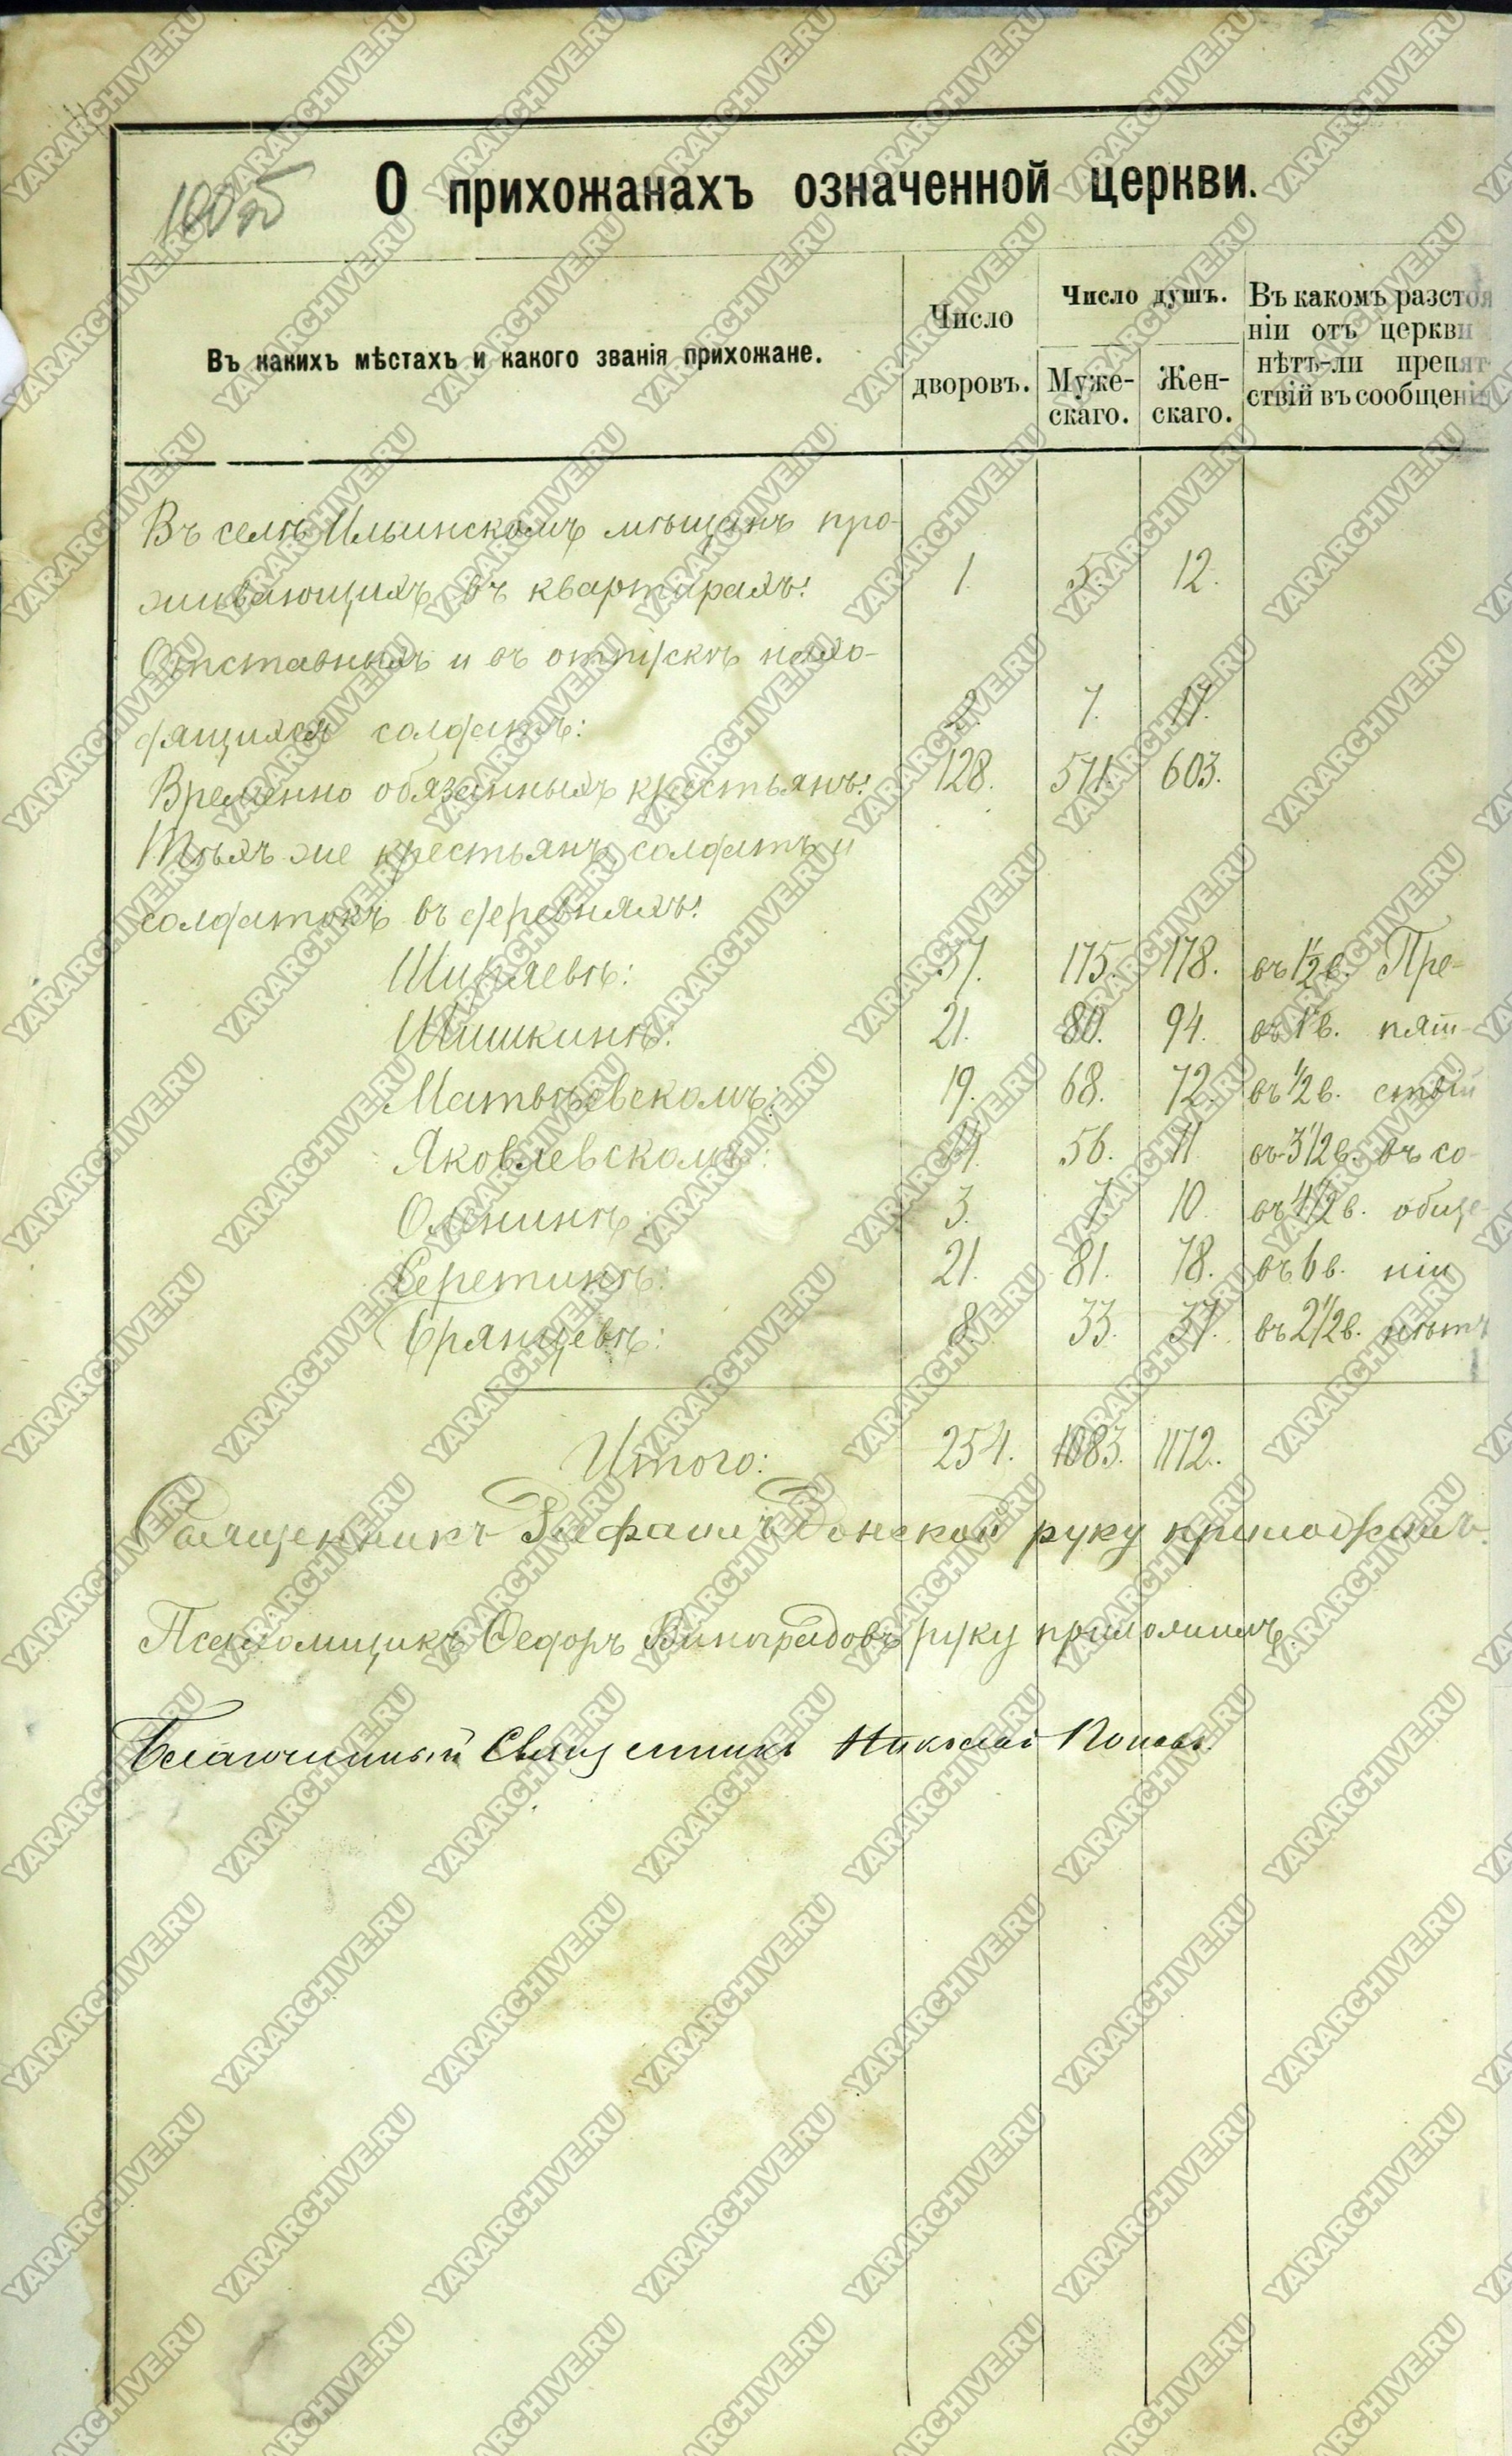 О прихожанахъ означенной церкви.
Въ какихъ мѣстахъ и какого званія прихожане.
Число дворовъ.
Число душъ.
Муже-
скаго.
Жен-
скаго.
Въ какомъ разстоя
ніи отъ церкви
нѣтъ-ли препят-
ствій въ сообщеніи
Въ селѣ Ильинскомъ мѣщанъ про-
живающихъ въ квартирахъ: 1. 5 12.
Отставныхъ и въ отпускѣ нахо-
дящихся солдатъ: 7.
Временно обязанныхъ крестьянъ: 128. 571. 603.
Тѣхъ же крестьянъ солдатъ и
солдатокъ въ деревняхъ:
Ширяевѣ: 37. 175. 178. въ 1 1/2 в. Пре-
Шишкинѣ: 21. 80. 94. въ 1 в. пят-
Матвѣевскомъ: 19. 68. 72. въ 1/2 в. ствій
Яковлевскомъ: 14. 56. 71 въ 3 1/2 в. въ со-
Оленинѣ: 3. 7 10. въ 4 1/2 в. обще-
Серетинѣ: 21. 81. 78. въ 6 в. ніи
Брянцевѣ: 8. 33. 37. въ 2 1/2 в. нѣтъ
Итого: 254. 1083. 1172.
Священникъ Рафаилъ Донской руку приложилъ.
Псаломщикъ Ѳедоръ Виноградовъ руку приложилъ
Благочинный Священникъ Николай Поповъ.
YARARCHIVE.RU